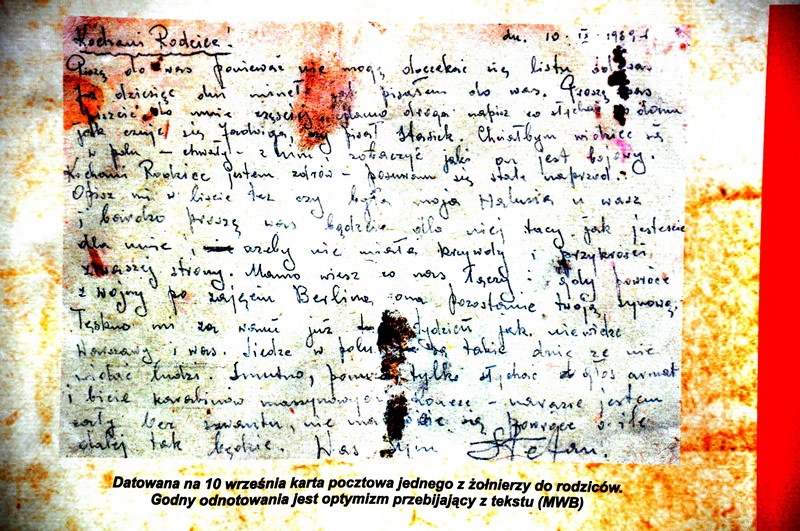 Kochani Rodzice! dn. 10 IX 1939 r
Piszę do was ponieważ nie mogę doczekać się listu od was
dziesięć dni minęło jak pisałem do was. Proszę was
piszcie do mnie częściej mamo droga napisz co słychać w domu
jak czuje się Jadwiga, czy pisał Stasiek. Chciałbym widzieć się
w polu - chwały - z nim i zobaczyć jaki on jest bojowy.
Kochani Rodzice jestem zdrów - posuwam się stale naprzód.
Opisz mi w liście też czy była moja Halusia u was
i bardzo proszę was bądźcie dla niej tacy jak jesteście
dla mnie i ażeby nie miała krzywdy i przykrości
z waszej strony. Mamo wiesz co nas łączy i gdy powrócę
z wojny po zajęciu Berlina ona pozostanie twoją synową.
Tęskno mi za wami już tydzień jak nie widzę
Warszawy i was. Siedzę w polu są takie dnie że nie
widać ludzi. Smutno, ponuro tylko słychać odgłos armat
i bicie karabinów maszynowych Kończę - narazie jestem
cały bez szwanku, nie się powrócę o ile
dalej tak będzie. Was Stefan.
Datowana na 10 września karta pocztowa jednego z żołnierzy do rodziców.
Godny odnotowania jest optymizm przebijający z tekstu (MWB)